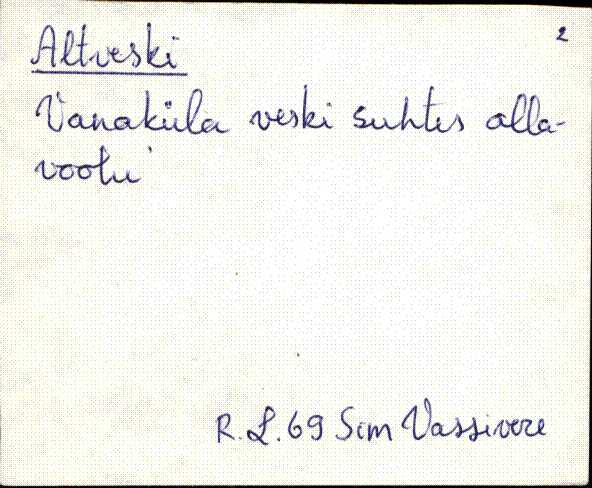 2
Altveski
Vanaküla veski suhtes alla-
voolu
R. L. 69 Sim Vassivere